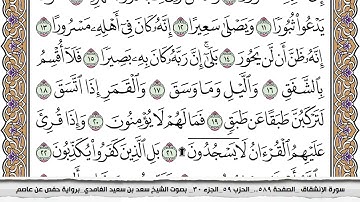 يَدْعُوا۟ ثُبُورًا ١١ وَيَصْلَىٰ سَعِيرًا ١٢ إِنَّهُۥ كَانَ فِىٓ أَهْلِهِۦ مَسْرُورًا ١٣
إِنَّهُۥ ظَنَّ أَن لَّن يَحُورَ ١٤ بَلَىٰٓ إِنَّ رَبَّهُۥ كَانَ بِهِۦ بَصِيرًا ١٥ فَلَآ أُقْسِمُ
بِٱلشَّفَقِ ١٦ وَٱلَّيْلِ وَمَا وَسَقَ ١٧ وَٱلْقَمَرِ إِذَا ٱتَّسَقَ ١٨
لَتَرْكَبُنَّ طَبَقًا عَن طَبَقٍ ١٩ فَمَا لَهُمْ لَا يُؤْمِنُونَ ٢٠ وَإِذَا قُرِئَ
عَلَيْهِمُ ٱلْقُرْءَانُ لَا يَسْجُدُونَ ۩ ٢١ بَلِ ٱلَّذِينَ كَفَرُوا۟ يُكَذِّبُونَ ٢٢
سورة الإنشقاق _الصفحة ٥٨٩_ الحزب ٥٩_الجزء ٣٠_ بصوت الشيخ سعد بن سعيد الغامدي _برواية حفص عن عاصم